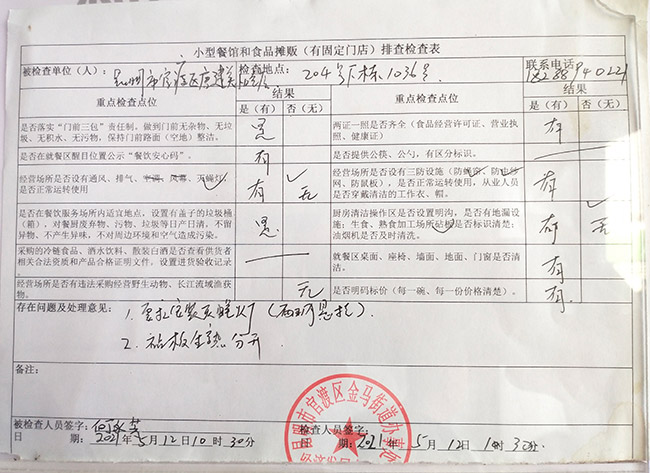 小型餐馆和食品摊贩（有固定门店）排查检查表
被检查单位（人）：昆明市官渡区 检查地点：204号1栋1036号 联系电话
重点检查点位 结果 重点检查点位 结果
是（有） 否（无） 是（有） 否（无）
是否落实“门前三包”责任制。做到门前无杂物、无垃圾、无积水、无污物，保持门前路面（空地）整洁。 是
两证一照是否齐全（食品经营许可证、营业执照、健康证） 有
是否在就餐区醒目位置公示“餐饮安心码”。 有
是否提供公筷、公勺，有区分标识。
经营场所是否设有通风、排气、空调、风幕、灭蝇灯，是否正常运转使用 有 无
经营场所是否设有三防设施（防蝇帘、防虫纱网、防鼠板），是否正常运转使用，从业人员是否穿戴清洁的工作衣、帽。 有
是否在餐饮服务场所内适宜地点，设置有盖子的垃圾桶（箱），对餐厨废弃物、污物、垃圾等日产日清，不留异物、不产生异味，不对周边环境和空气造成污染。 是
厨房清洁操作区是否设置明沟，是否有地漏设施；生食、熟食加工场所砧板是否标识清楚；油烟机是否及时清洗。 有 无
采购的冷链食品、酒水饮料、散装白酒是否查看供货者相关合法资质和产品合格证明文件。设置进货验收记录。
就餐区桌面、座椅、墙面、地面、门窗是否清洁。 有
经营场所是否有违法采购经营野生动物、长江流域渔获物。 无
是否明码标价（每一碗、每一份价格清楚）。 有
存在问题及处理意见：
1. 要求安装灭蝇灯
2. 砧板生熟分开
备注：
被检查人员签字：
日期：2021年5月12日10时30分
检查人员签字：
日期：2021年5月12日1时30分
昆明市官渡区金马街道办事处